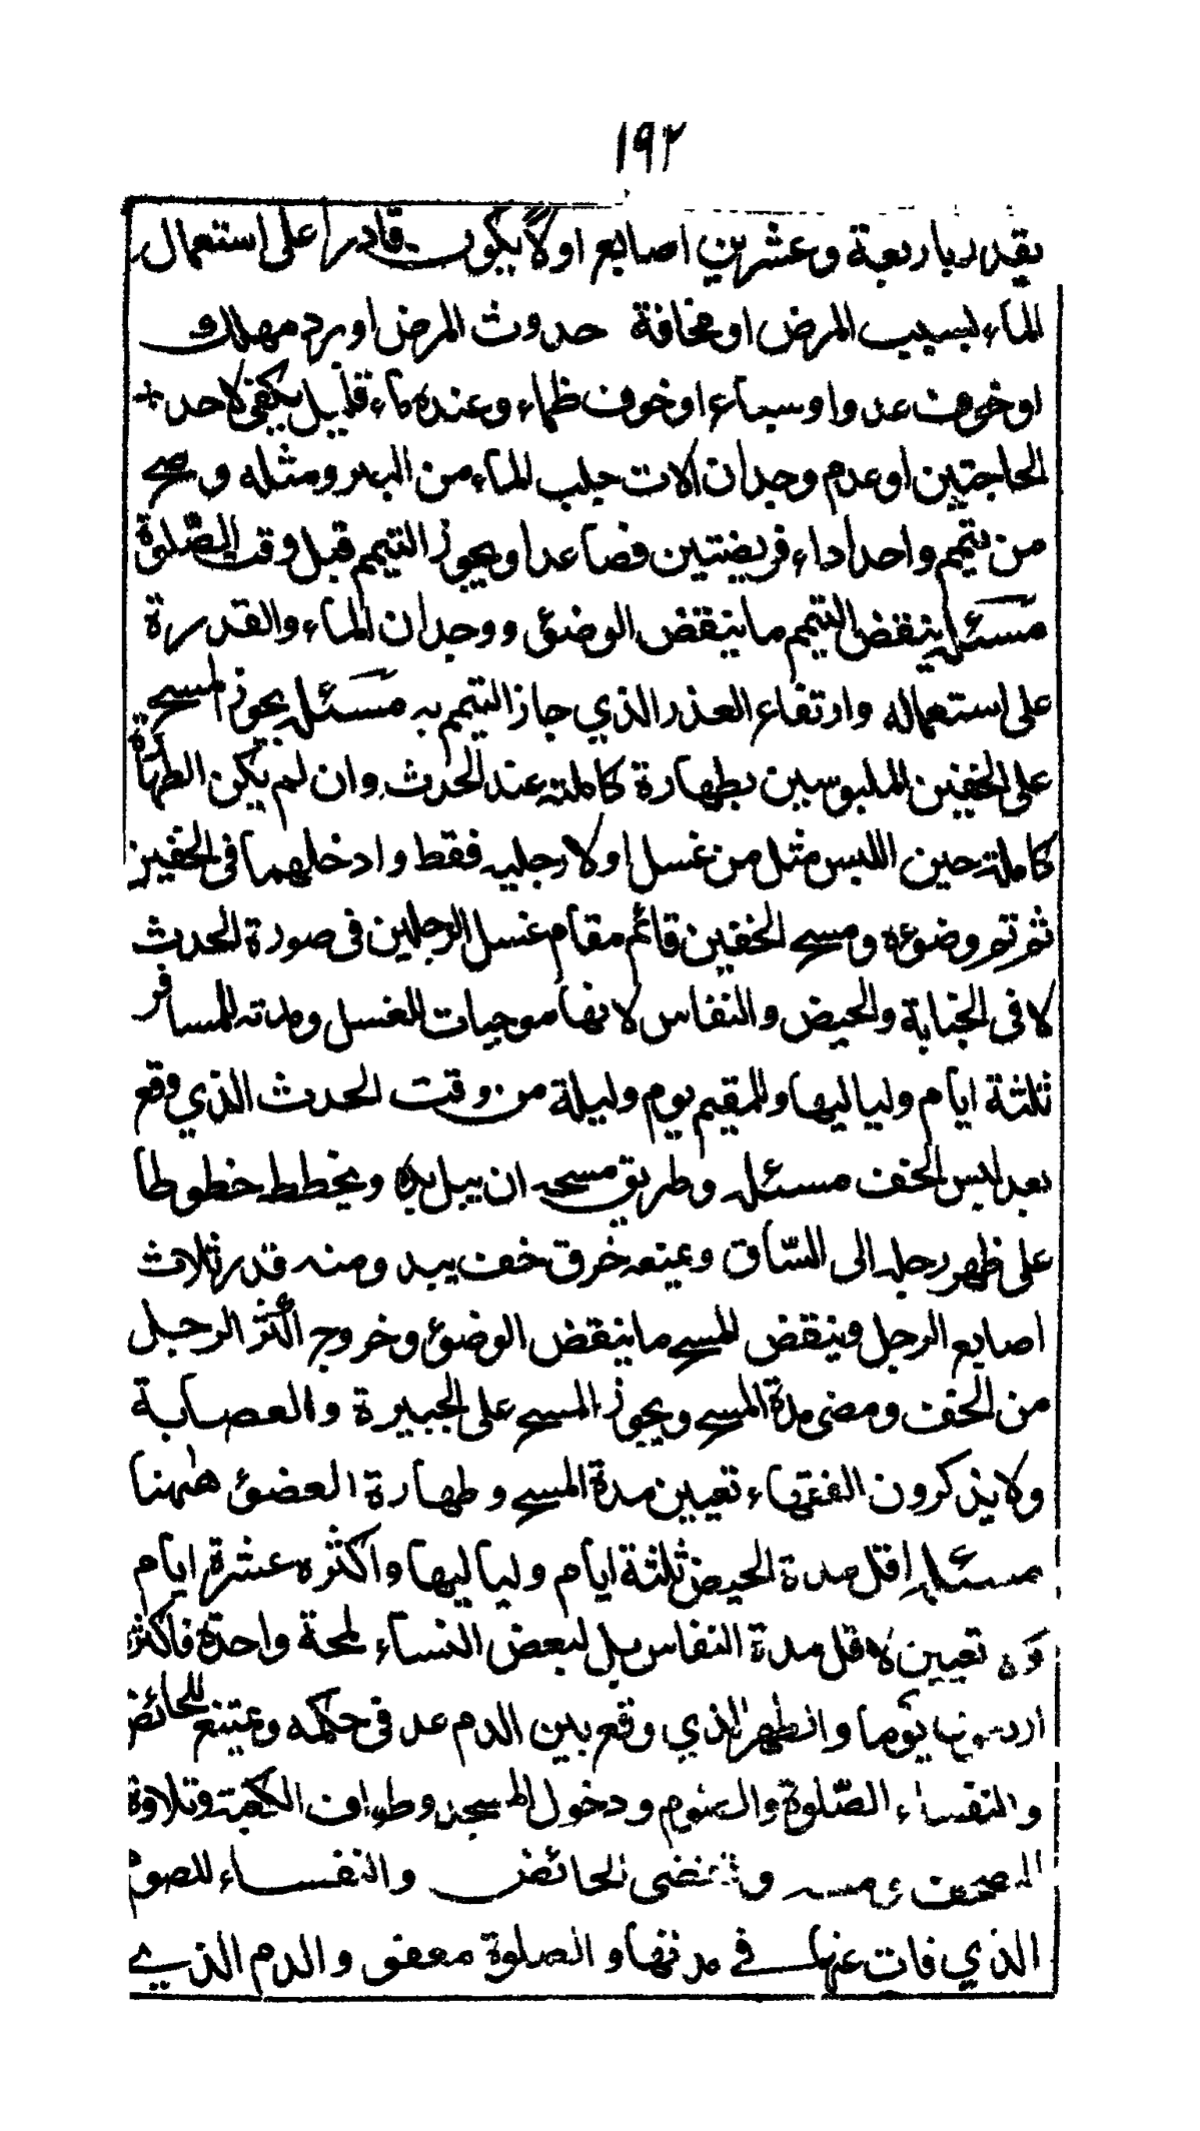 ١٩٢
يقدر باربعة وعشرين اصابع اولا يكون قادرا على استعمال
الماء لسبب المرض او مخافة حدوث المرض او برد مهلك
او خوف عدو او سباع او خوف ظماء وعنده ماء قليل يكفى لاحد
الحاجتين او عدم وجدان الات جلب الماء من البير ومثله وصح
من تيمم واحد اداء فريضتين فصاعدا ويجوز التيمم قبل وقت الصّلوة
مسئله ينقض التيمم ما ينقض الوضوء ووجدان الماء والقدرة
على استعماله وارتفاع العذر الذي جاز التيمم به مسئله يجوز المسح
على الخفين الملبوسين بطهارة كاملته عند الحدث وان لم يكن الطهارة
كاملته حين اللبس مثل من غسل اولا رجليه فقط وادخلهما فى الخفين
ثم تم وضوءه ومسح الخفين قائم مقام غسل الرجلين فى صورة الحدث
لا فى الجنابة والحيض والنفاس لانها موجبات للغسل ومدته للمسافر
ثلثة ايام ولياليها وللمقيم يوم وليلة من وقت الحدث الذي وقع
بعد لبس الخف مسئله وطريق مسحه ان يبل يده ويخطط خطوطا
على ظهر رجله الى السّاق ويمنعه خرق خف يبدو منه قدر ثلاث
اصابع الرجل وينقض المسح ما ينقض الوضوء وخروج اكثر الرجل
من الخف ومضى مدة المسح ويجوز المسح على الجبيرة والعصابة
ولا يذكرون الفقهاء تعيين مدة المسح وطهارة العضو ههنا
مسئله اقل مدة الحيض ثلثة ايام ولياليها واكثره عشرة ايام
تعيين لاقل مدة النفاس بل لبعض النساء لمحة واحدة فاكثره
يوما والطهر الذي وقع بين الدم عد فى حكمه ويمتنع للحائض
والنفساء الصّلوة والصوم ودخول المسجد وطواف الكعبة وتلاوة
المصحف ومسه وتقضى الحائض والنفساء للصوم
الذي فات عنها فى مدتها والصلوة معفو والدم الذي